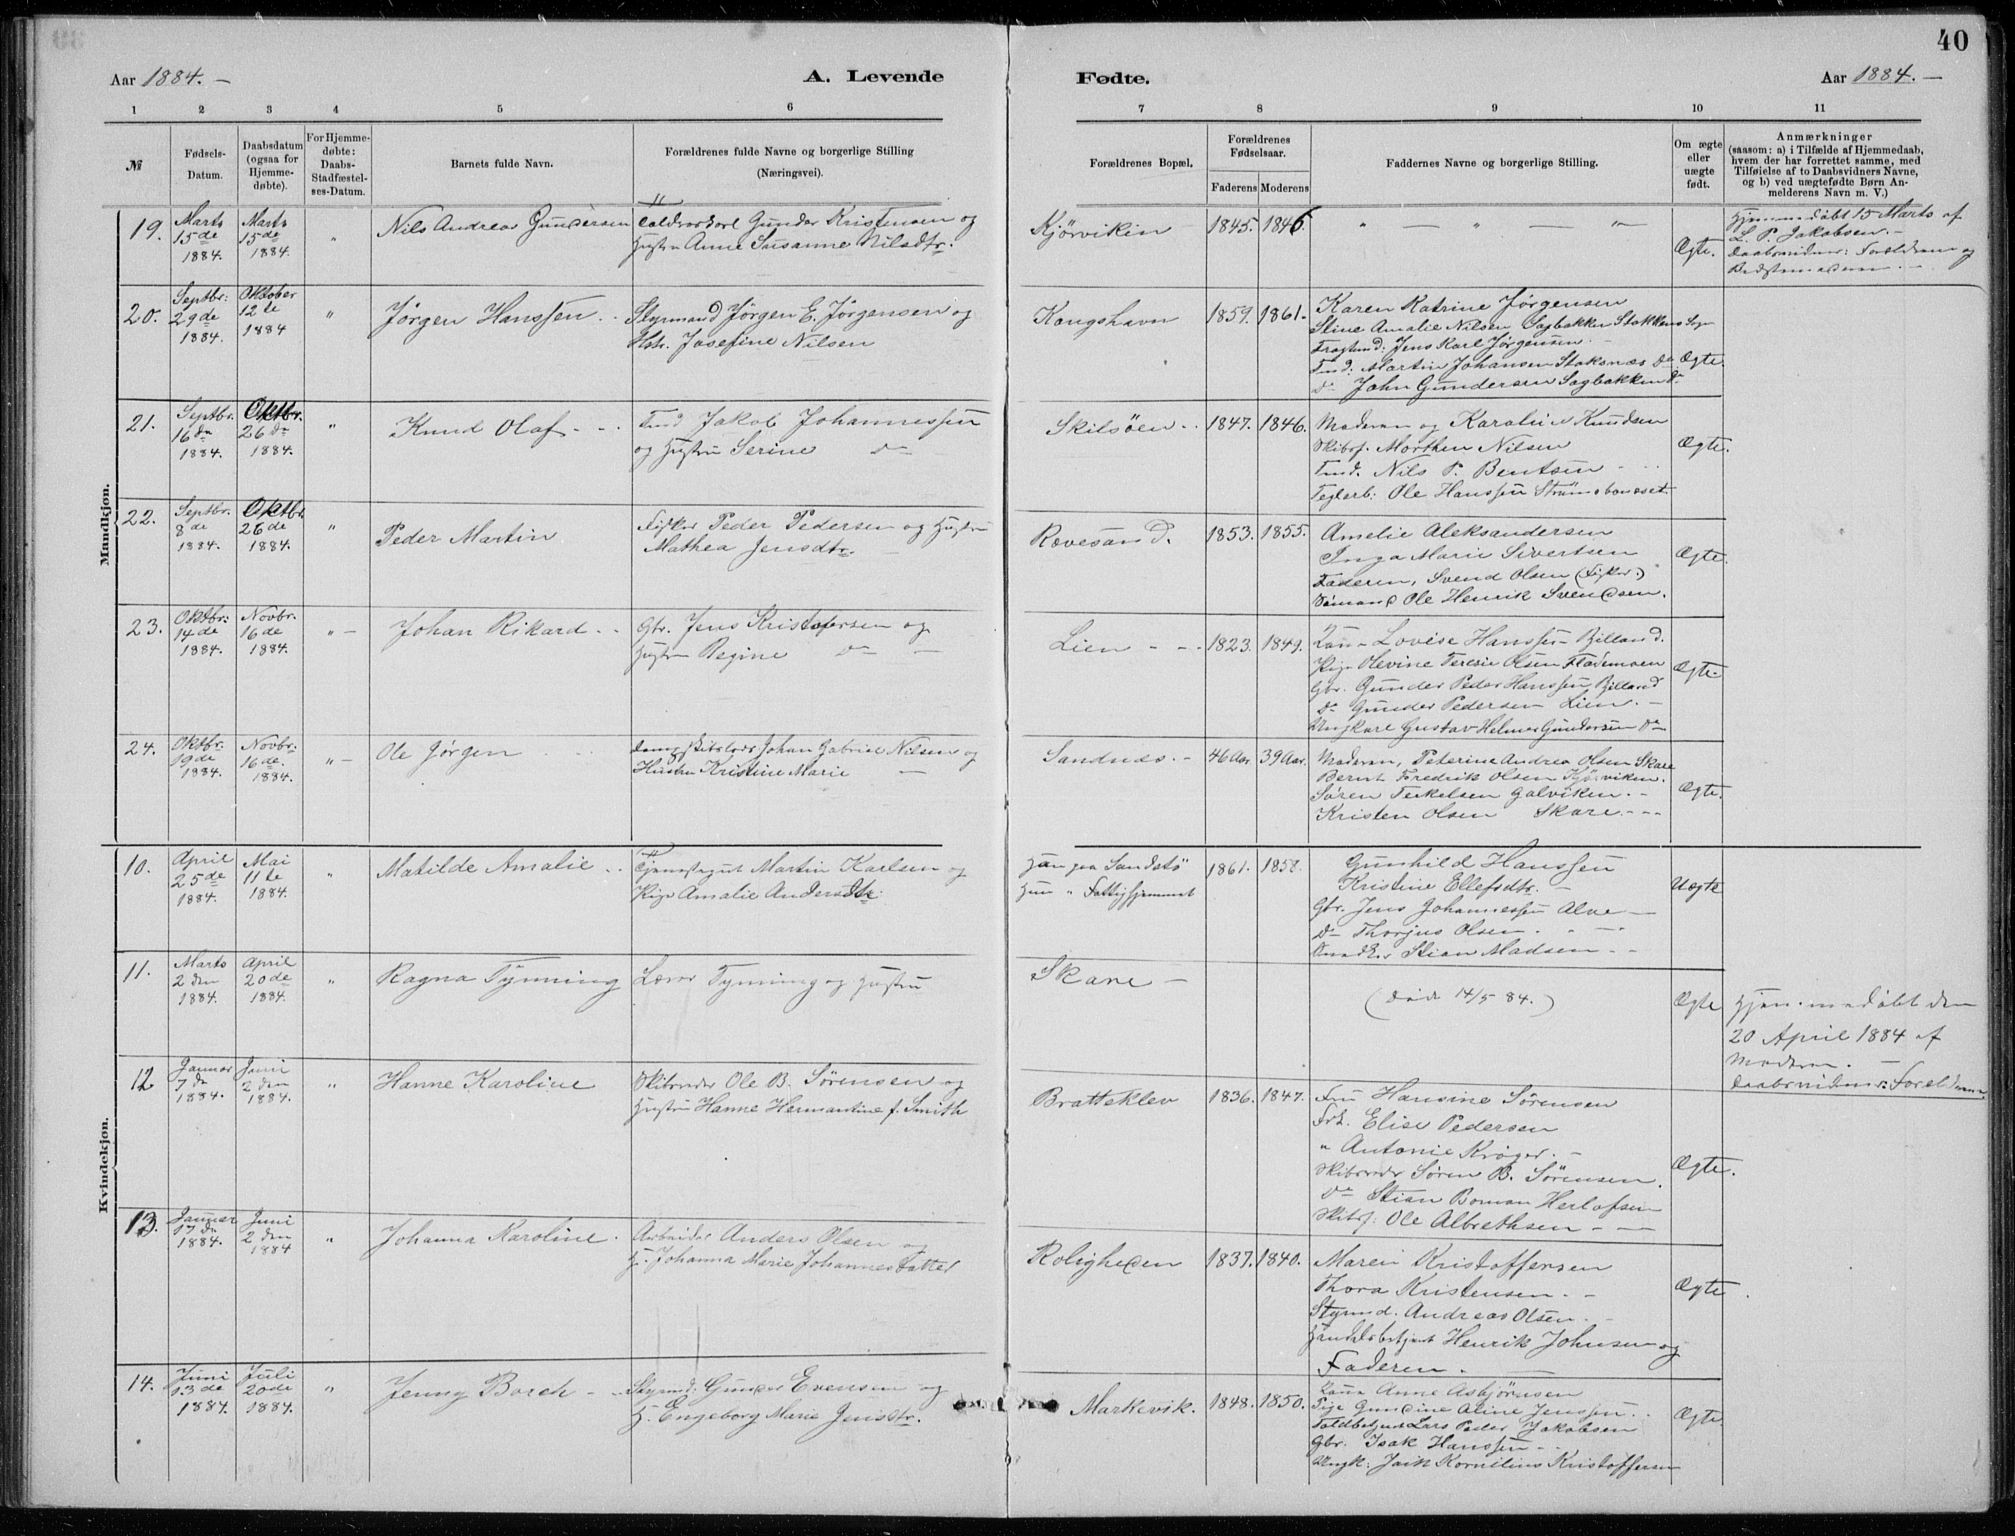 40
Aar 1884. —
A. Levende
Fødte.
Aar 1884. —
1 2 3 4 5 6 7 8 9 10 11
№
Fødsels-
Datum.
Daabsdatum
(ogsaa for
Hjemme-
døbte).
For Hjemme-
døbte:
Daabs-
Stadfæstel-
ses-Datum.
Barnets fulde Navn.
Forældrenes fulde Navne og borgerlige Stilling
(Næringsvei).
Forældrenes Bopæl.
Forældrenes
Fødselsaar.
Faderens Moderens
Faddernes Navne og borgerlige Stilling.
Om ægte
eller
uægte
født.
Anmærkninger
(saasom: a) i Tilfælde af Hjemmedaab,
hvem der har forrettet samme, med
Tilføielse af to Daabsvidners Navne,
og b) ved uægtefødte Børn An-
melderens Navn m. V.)
Mandkjøn.
19.
Marts
15de
1884.
Marts
15de
1884.
"
Nils Andreas Gundersen
Gunder Kristensen og
Hustru Anne Susanne Nilsdtr.
Kjørviken
1845. 1846.
" — " — " —
Ægte.
Hjemmedøbt 15 Marts af
L. P. Jakobsen. —
Daabsvidner: Forældrene og
20.
Septbr:
29de
1884.
Oktober
12te
1884
"
Jørgen Hanssen
Styrmand Jørgen E. Jørgensen og
Hstr. Josefine Nilsen
Kongshavn
1859. 1861.
Karen Katrine Jørgensen
Stine Amalie Nilsen Sagbakken Stokkens Sogn
Jens Karl Jørgensen
Martin Johansen Do
Do John Gundersen Sagbakken Do
Ægte.
21.
Septbr.
16de
1884.
Oktbr.
26de
1884.
"
Knud Olaf
Tmd Jakob Johannessen
og Hustru Serine Do
Skilsöen
1847. 1846.
Moderen og Karoline Knudsen
Skibsf. Morthen Nilsen
Tmd. Nils P. Bentsen
Teglarb: Ole Hanssen Strømsbueset.
Ægte.
22.
Septbr.
8de
1884.
Oktbr.
26de
1884.
"
Peder Martin
Fisker Peder Pedersen og Hustru
Mathea Jensdtr.
Rævesand.
1853. 1855.
Amelie Aleksandersen
Inga Marie Sivertsen
Faderen, Svend Olsen (Fisker)
Sømand Ole Henrik Svendsen.
Ægte.
23.
Oktbr:
14de
1884.
Novbr.
16de
1884.
" —
Johan Rikard
Gbr. Jens Kristofersen og
Hustru Regine Do
Lien
1823. 1849.
Kone Lovise Hanssen Bjelland.
Pige Olevine Teresie Olsen Flademoen
Gbr. Gunder Peder Hanssen Bjelland
Do Gunder Pedersen Lien. —
Ungkarl Gustav Helmer Gundersen Do
Ægte.
24.
Oktbr.
19de
1884.
Novbr.
16de.
1884.
" —
Ole Jørgen
Dampskibslods Johan Gabriel Nilsen og
Hustru Kristine Marie
Sandnes. —
46 Aar 39 Aar.
Moderen, Peterine Andrea Olsen Skare
Bernt Fredrik Olsen Kjørviken.
Søren Terkelsen Galviken. —
Kristen Olsen Skare. —
Ægte.
Kvindekjøn.
10.
April
25de
1884.
Mai
11te
1884.
"
Matilde Amalie
Tjenestegut Martin Karlsen og
Pige Amalie Andersdtr.
Han paa Sandstø
Hun " Fattighjemmet
1861. 1858.
Gunhild Hanssen
Kristine Ellefsdtr.
Gbr. Jens Johannessen Alve
Do Thorjus Olsen
Stian Madsen
Uægte
11.
Marts
2den
1884.
April
20de
1884.
"
Ragna Tynning
Lærer Tynning og Hustru
Skare —
(Død 14/5 84.)
Ægte
Hjemmedøbt den
20 April 1884 af
Moderen. —
Daabsvidner: Forældrene
12
Januar
7de
1884.
Juni
2den
1884.
"
Hanne Karoline
Skibsreder Ole B. Sørensen og
Hustru Hanne Hermantine f. Smith
Bratteklev
1836. 1847.
Fru Hansine Sørensen
Frk. Elise Pedersen
" Antonie Krøger. —
Skibsreder Søren B. Sørensen.
Do Stian Boman Herlofsen
Skibsf: Ole Albrethsen
Ægte.
13.
Januar
17de
1884.
Juni
2den
1884
"
Johanna Karoline.
Arbeider Anders Olsen og
H. Johanna Marie Johannesdatter
Roligheden
1837. 1840.
Maren Kristoffersen
Thora Kristensen. —
Styrmd. Andreas Olsen. —
Handelsbetjent Henrik Johnsen og
Faderen.
Ægte.
14.
Juni
13de
1884.
Juli
20de
1884.
"
Jenny Borch
Styrmd: Gunder Evensen og
H. Engeborg Marie Jensdtr.
Markevik.
1848. 1850.
Kone Anne Asbjørnsen
Pige Gundine Aline Jenssen.
Toldbetjent Lars Peder Jakobsen
Gbr. Isak Hanssen
Ungk: Kornelius Kristoffersen
Ægte